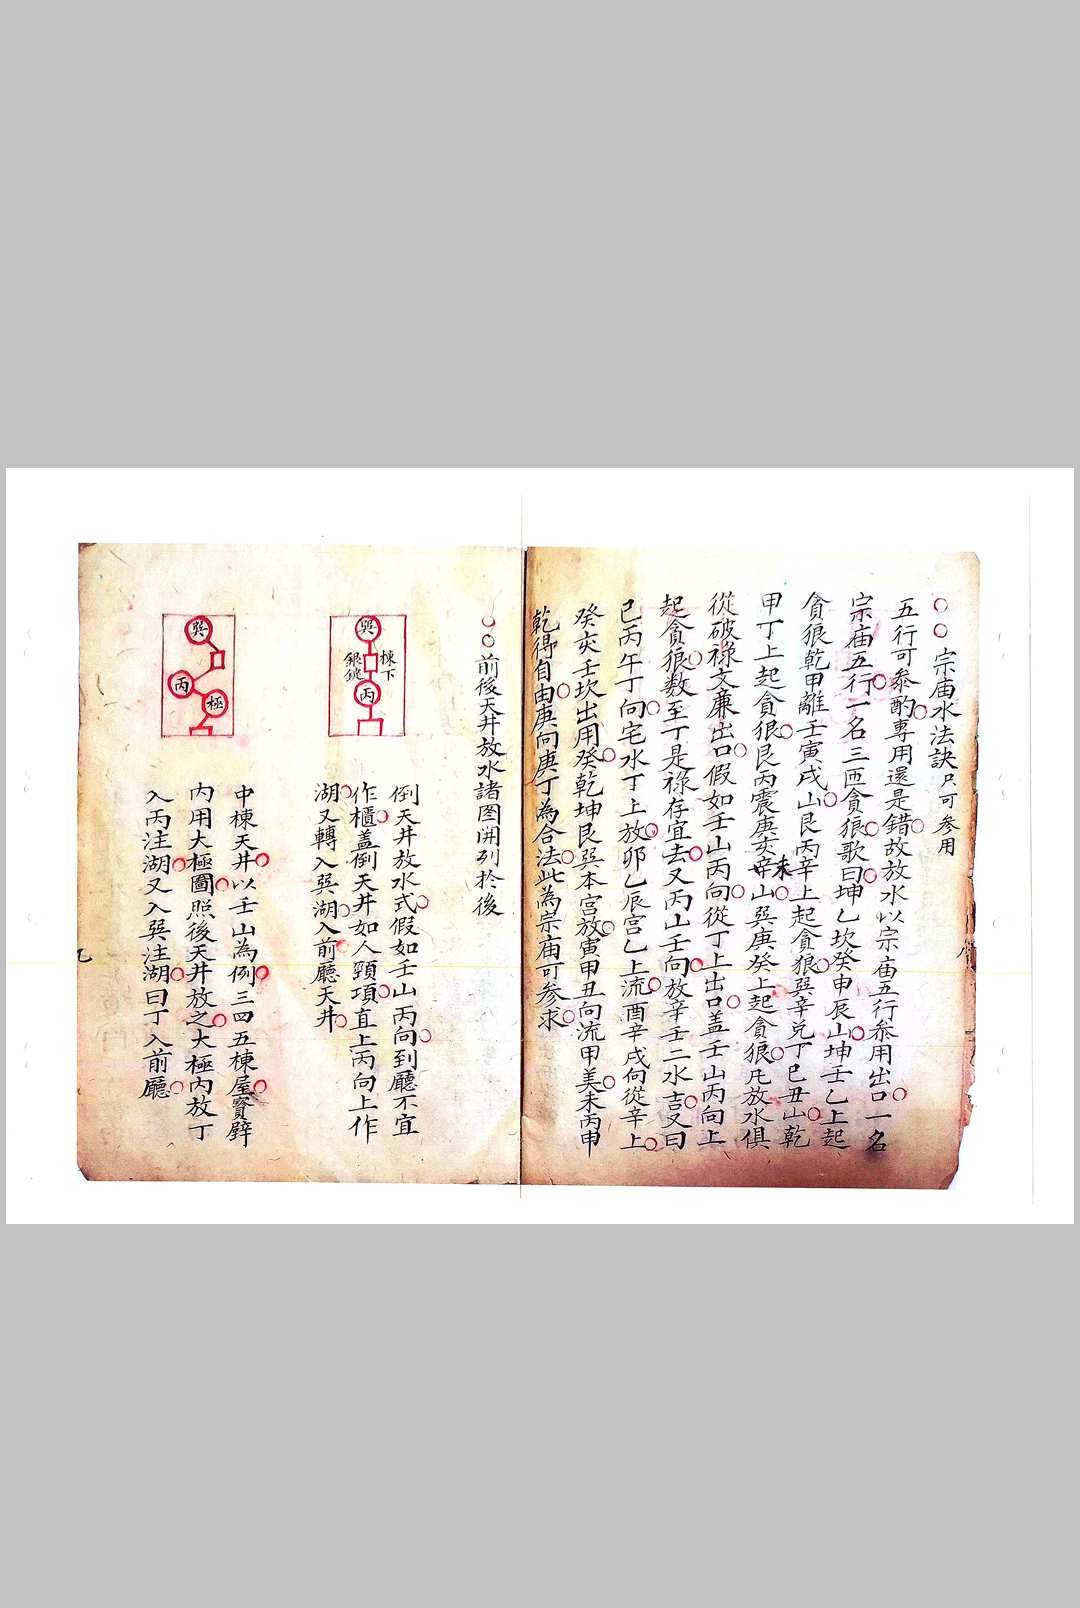 ○○宗庙水法訣只可参用
五行可叅酌○專用還是錯○故放水以宗庙五行叅用出口○一名
宗庙五行○一名三匝貪狼○歌曰○坤乙坎癸申辰山○坤壬乙上起
貪狼乾甲離壬寅戌山○艮丙辛上起貪狼○巽辛兌丁巳丑山○乾
甲丁上起貪狠○艮丙震庚亥辛未山○巽庚癸上起貪狼○凡放水俱
從破祿文廉出口○假如壬山丙向○從丁上出口○盖壬山丙向上
起貪狼○数至丁是祿存宜去○又丙山壬向○放辛壬二水吉○又曰
巳丙午丁向○宅水丁上放○卯乙辰宫乙上流○酉辛戌向從辛上○
癸亥壬坎出用癸○乾坤艮巽本宫放○寅甲丑向流甲美○未丙申
乾得自由○庚向庚丁為合法○此為宗庙可参求○
○○前後天井放水諸图開列於後
巽
棟下
銀銚
丙
倒天井放水式○假如壬山丙向○到廳不宜
作櫃○盖倒天井如人頸項○直上丙向上作
湖○又轉入巽湖○入前廳天井○
巽
丙
極
中棟天井○以壬山為例○三四五棟屋○寳壁
内用大極圖○照後天井放之○大極内放丁
入丙注湖○又入巽注湖○曰丁入前廳○